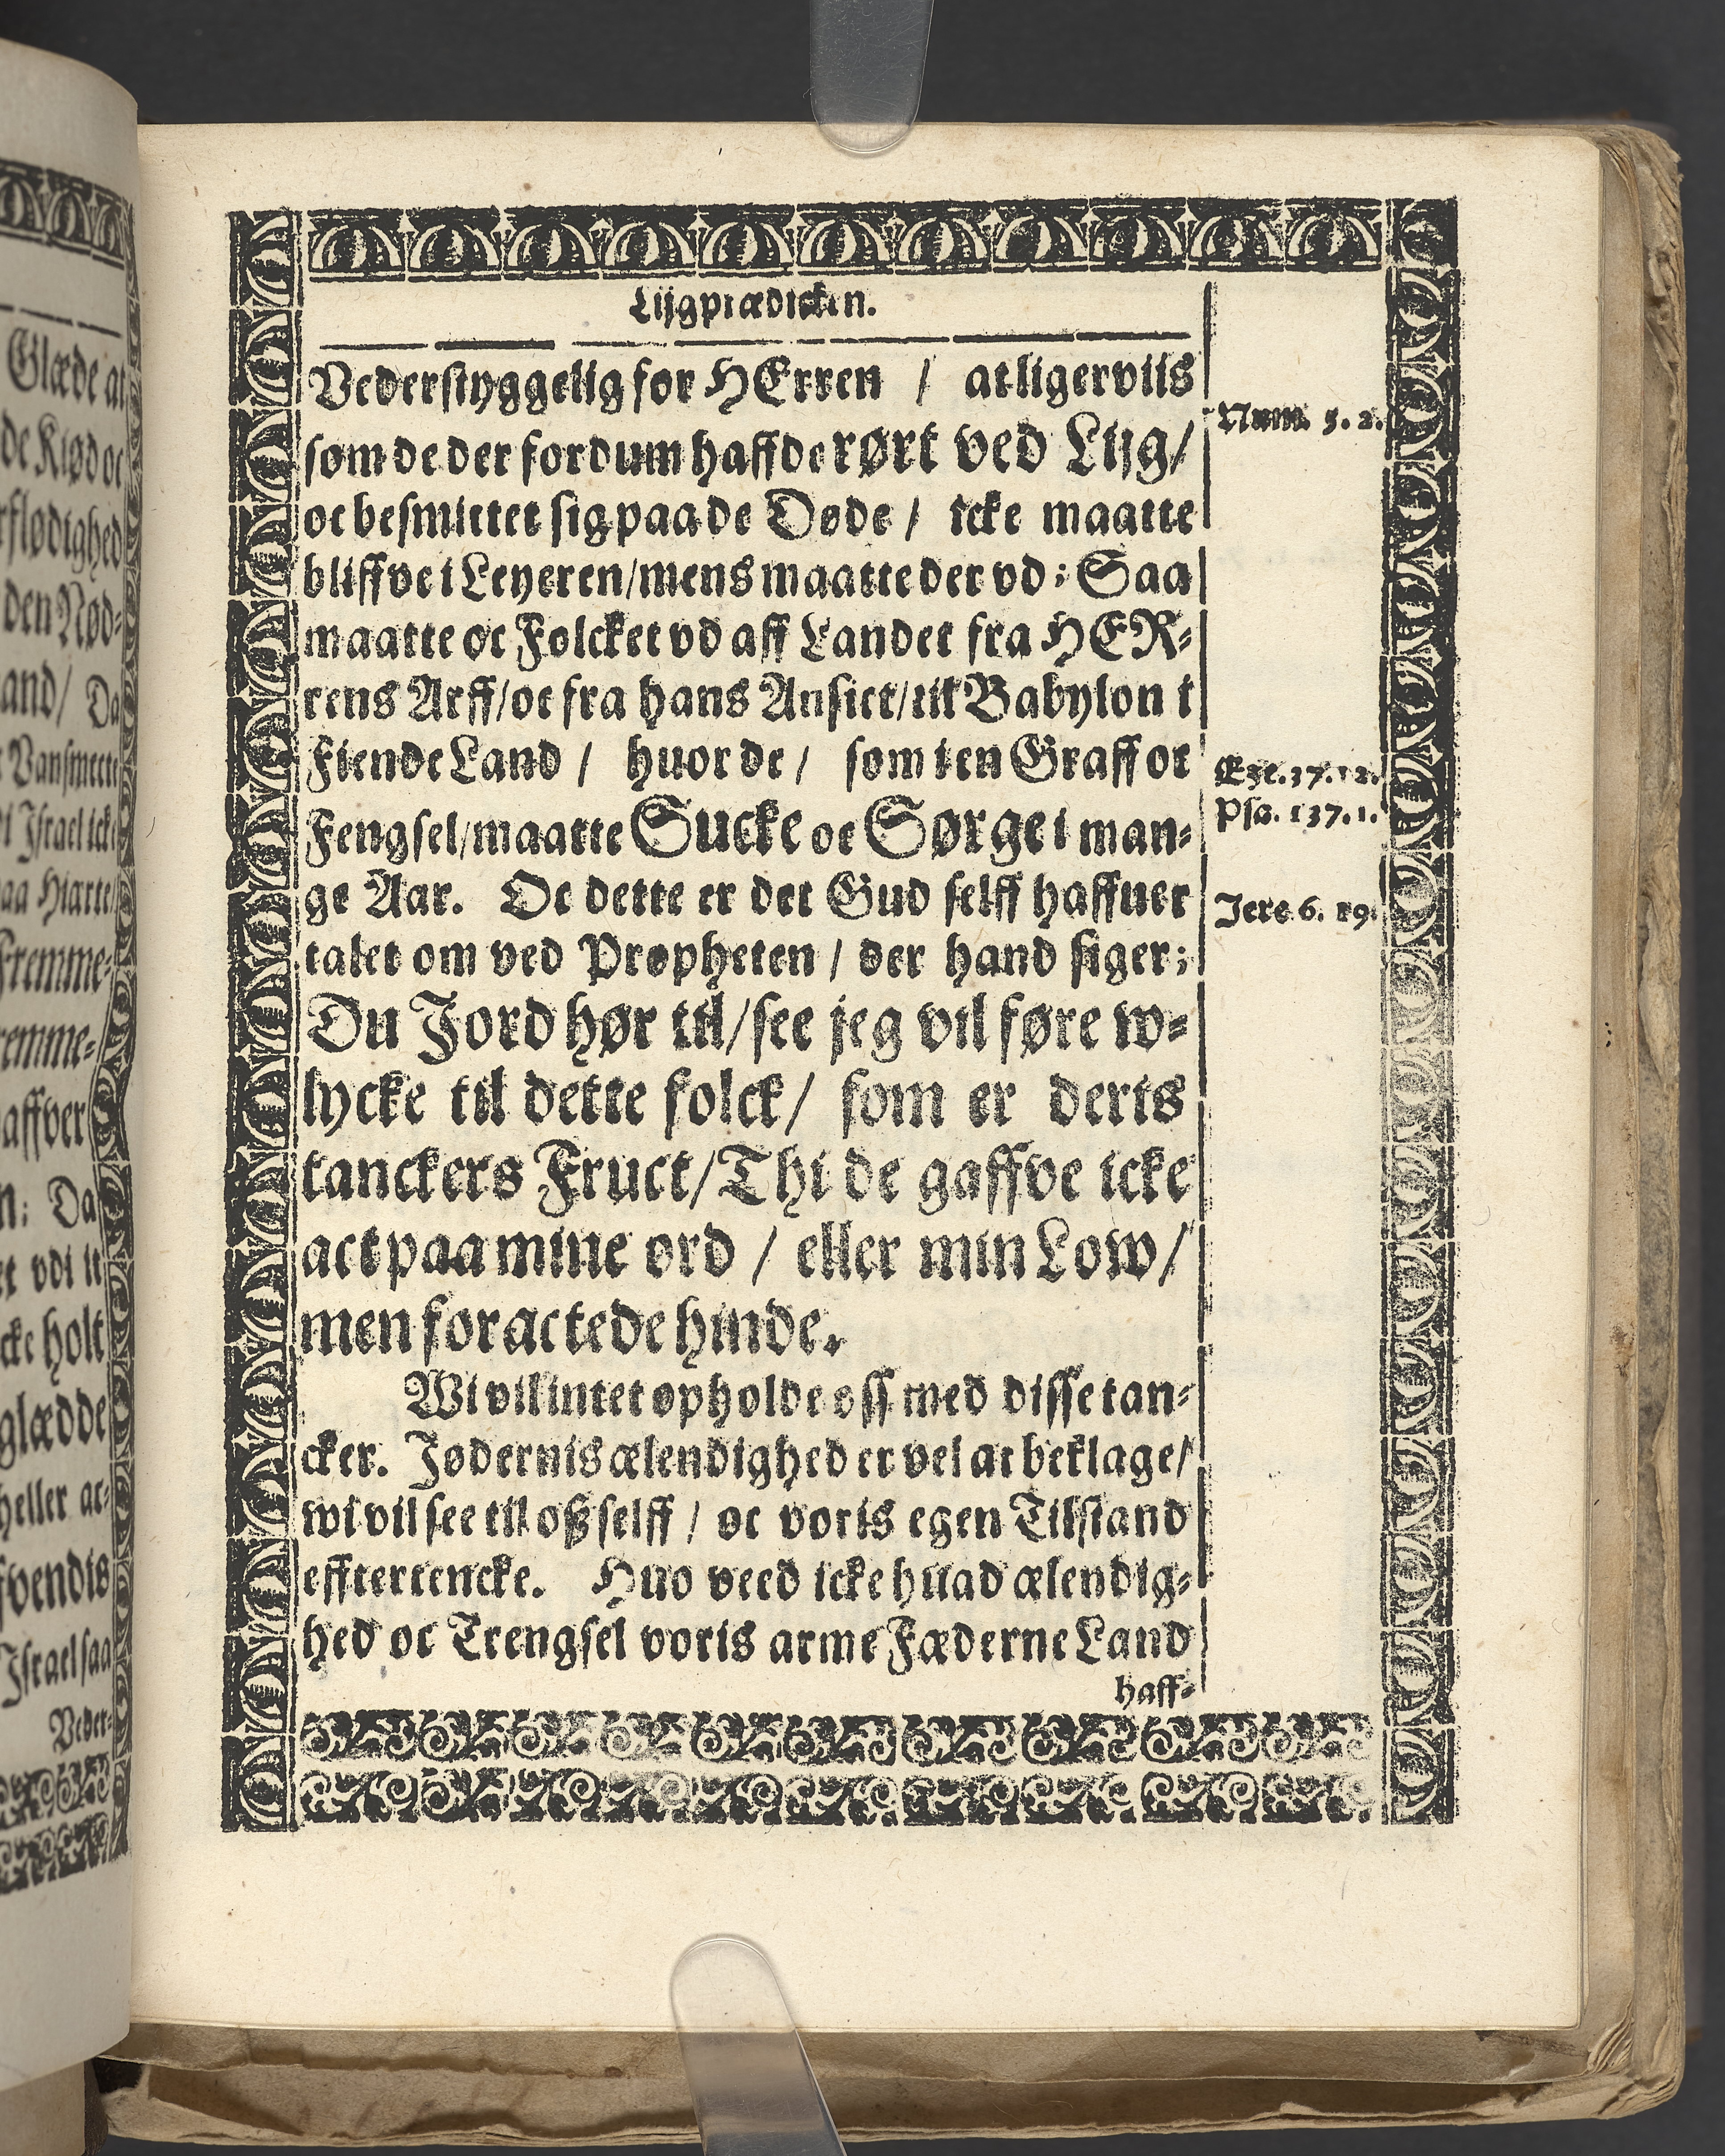 Lijgprædicken.
Vederstyggelig for HErren / at ligerviis
som de der fordum haffde rørt ved Lijg/
oc besmittet sig paa de Døde / icke maatte
bliffve i Leyeren/mens maatte der vd: Saa
maatte oc Folcket vd aff Landet fra HER-
rens Arff/oc fra hans Ansict/til Babylon i
Fiende Land / huor de / som i en Graff oc
Fengsel/maatte Sucke oc Sørge i man-
ge Aar. Oc dette er det Gud selff haffuer
talet om ved Propheten / der hand siger:
Du Jord hør til/see jeg vil føre w-
lycke til dette folck/ som er deris
tanckers Fruct/Thi de gaffve icke
act paa mine ord / eller min Low/
men foractede hinde.
Wi vil intet opholde oss med disse tan-
cker. Jødernis ælendighed er vel at beklage/
wi vil see till oß selff / oc voris egen Tilstand
efftertencke. Huo veed icke huad ælendig-
hed oc Trengsel voris arme Fæderne Land
haff-
Num. 5. 2.
Eze. 37. 12.
Psa. 137. 1.
Jere. 6. 19.
Glæde at
de Kiød oc
rflødighed
den Nød-
and/ Da
Vansmect
Israel icke
aa Hiarte
Fremme-
remme-
affver
n: Da
et vdi it
cke holt
glædde
heller at-
fvendis
Israel saa
Veder-